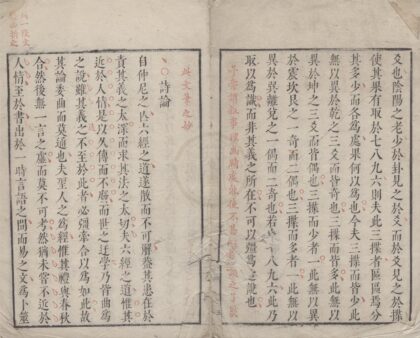 爻也陰陽之老少於卦見之於爻而於爻見之於揲
使其果有取於七八九六則夫此三揲者區區焉分
其多少而各為處果何以為也今夫三揲而皆少此
無以異於乾之三爻而皆奇也三揲而皆多此無以
異於坤之三爻而皆偶也三揲而少者一此無以異
於震坎艮之一奇而二偶也三揲而多者一此無以
異於巽離兌之一偶而二奇也若夫七八九六此乃
取以為識而非其義之所在不可以彊為之說也
詩論
自仲尼之亡六經之道遂散而不可解葢其患在於
責其義之太深而求其法之太切夫六經之道惟其
近於人情是以久傳而不廢而世之迂學乃皆曲為
之說雖其義之不至於此者必彊牽合以為如此故
其論委曲而莫通也夫聖人之為經惟其禮與春秋
合然後無一言之虛而莫不可考然猶未嘗不近於
人情至於書出於一時言語之間而易之文為卜筮